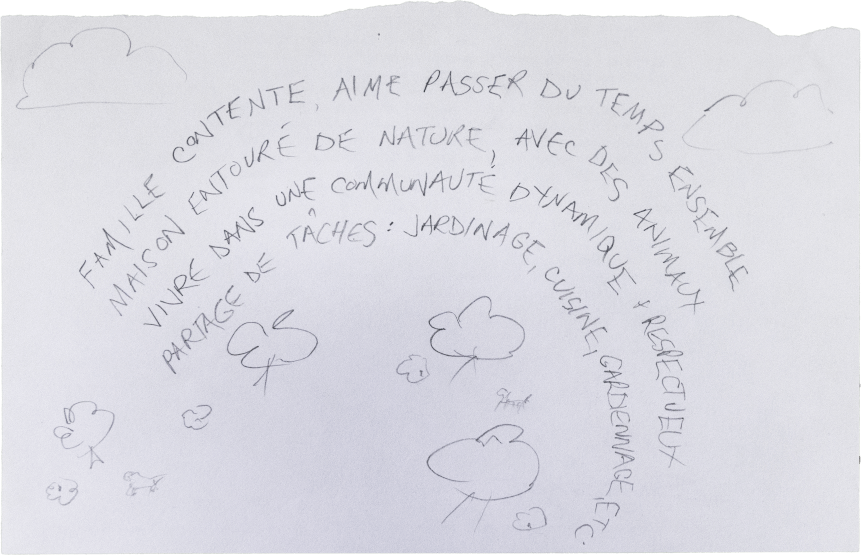 FAMILLE CONTENTE, AIME PASSER DU TEMPS ENSEMBLE
MAISON ENTOURÉ DE NATURE, AVEC DES ANIMAUX
VIVRE DANS UNE COMMUNAUTÉ DYNAMIQUE & RESPECTUEUX
PARTAGE DE TÂCHES : JARDINAGE, CUISINE, GARDENNAGE, ETC.